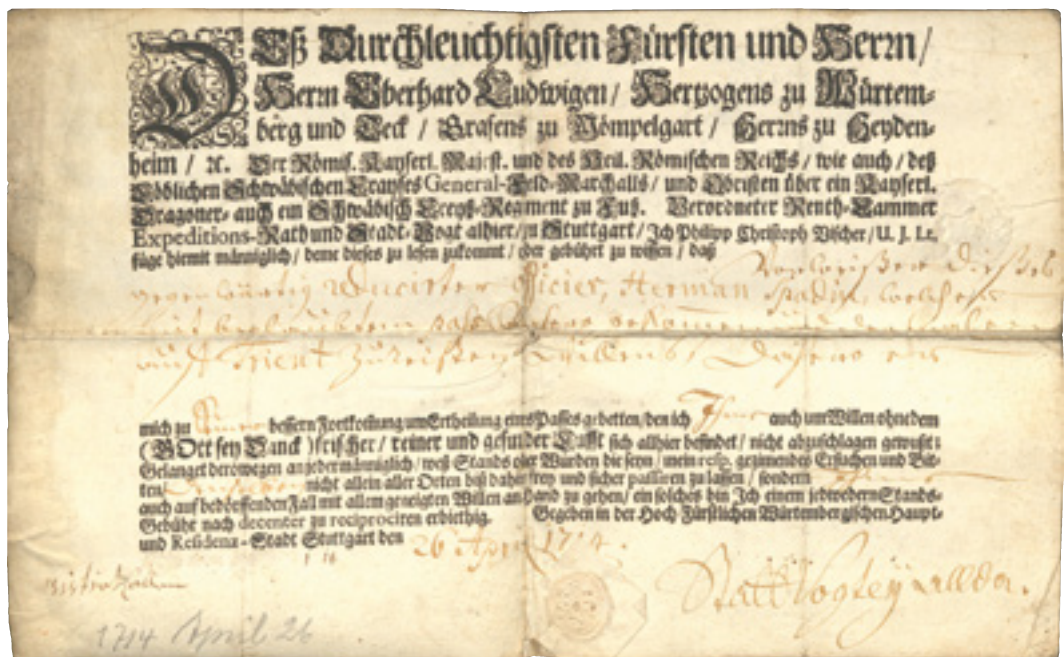 DEß Durchleuchtigsten Fürsten und Herrn /
Herrn Eberhard Ludwigen / Hertzogens zu Würtem-
berg und Teck / Grafens zu Mömpelgart / Herrns zu Heyden-
heim / ꝛc. Der Römis. Kayserl. Majest. und des Heil. Römischen Reichs / wie auch / deß
Löblichen Schwäbischen Crayses General-Feld-Marchalls / und Obristen über ein Kayserl.
Dragoner- auch ein Schwäbisch Creyß-Regiment zu Fuß. Verordneter Renth-Cammer
Expeditions-Rath und Stadt-Vogt alhier / in Stuttgart / Ich Philipp Christoph Vischer / U. J. Lt.
füge hiemit männiglich / deme dieses zu lesen zukommt / oder gebührt zu wissen / daß
gegenwärtig reducirter Officier, Herman
auff Trient zu reißen Willens,
mich zu bessern Fortkommung um Ertheilung eines Passes gebetten / den ich Ihme auch um Willen ohne dem
(GOtt sey Danck) frischer / reiner und gesunder Lufft sich allhier befindet / nicht abzuschlagen gewußt;
Gelanget derowegen an jedermänniglich / weß Stands oder Würden die seyn / mein resp. gezimendes Ersuchen und Bit-
ten / nicht allein aller Orten biß daher frey und sicher passiren zu lassen / sondern
auch auf bedörffenden Fall mit allem geneigten Willen an Hand zu gehen / ein solches bin Ich einem jedwedern Stands-
Gebühr nach decenter zu reciprociren erbiethig. Gegeben in der Hoch Fürstlichen Würtembergischen Haupt-
und Residenz-Stadt Stuttgart den 26 April 1714.
Stattvogtey allda.
1714 April 26